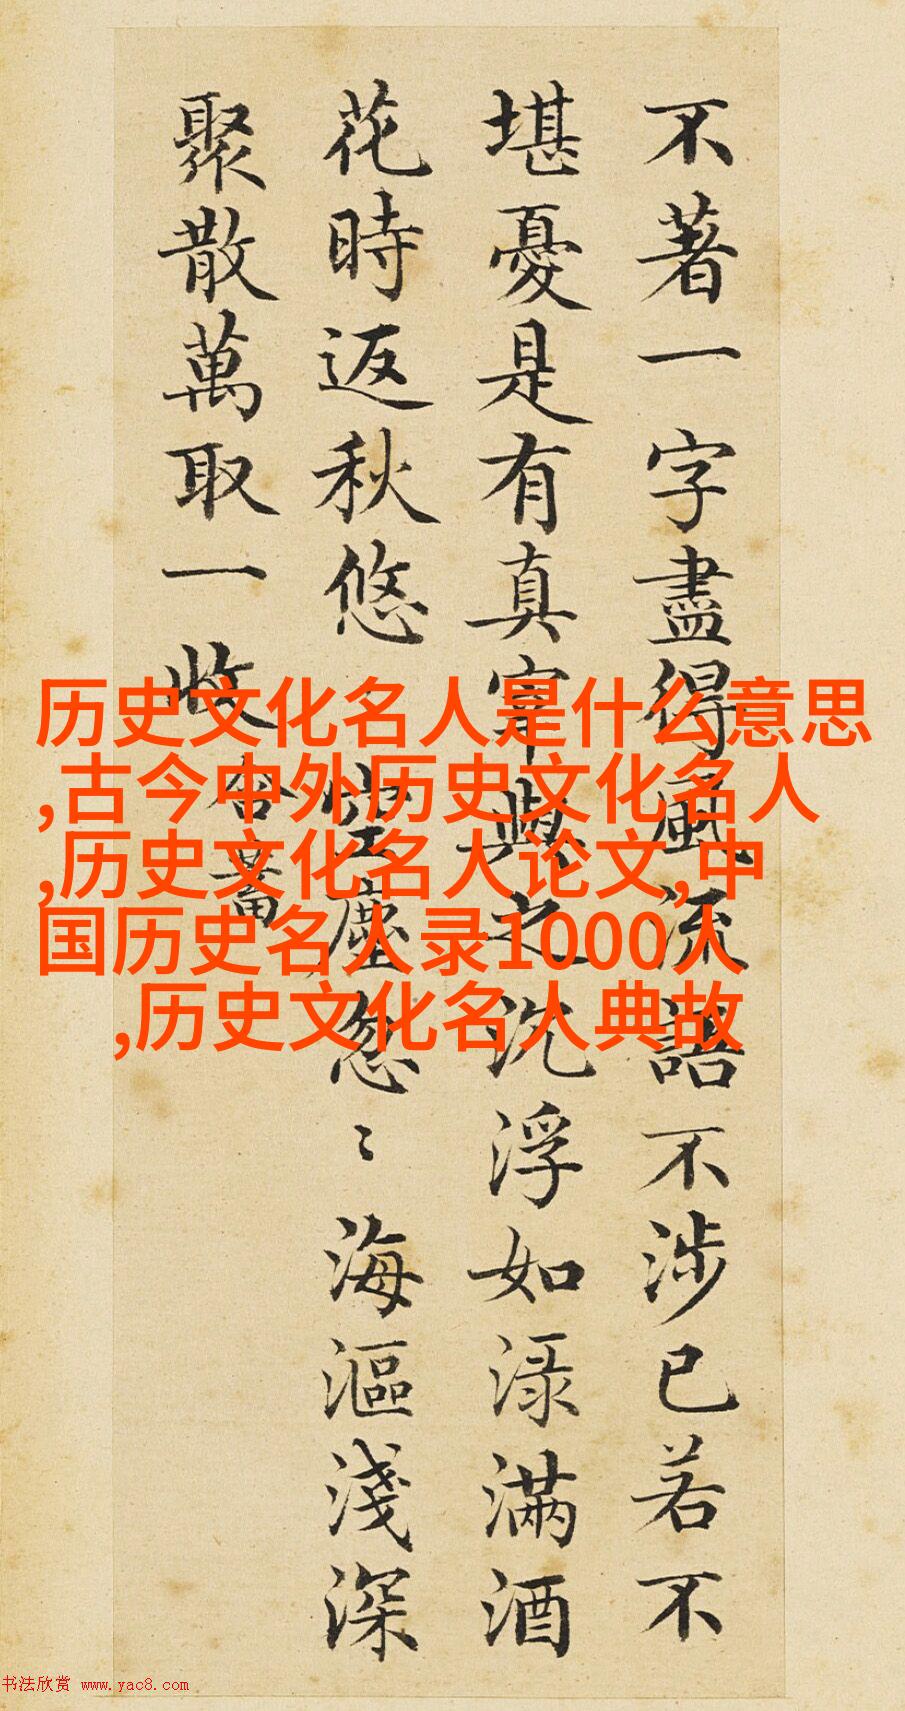 不著一字盡得風流語不涉已若不
堪憂是有真宰與之沈浮如淥滿酒
花時返秋悠〻空塵忽〻海漚淺深
聚散萬取一收
含蓄
历史文化名人是什么意思
,古今中外历史文化名人
,历史文化名人论文,中
国历史名人录1000人
,历史文化名人典故
书法欣赏 www.yac8.com